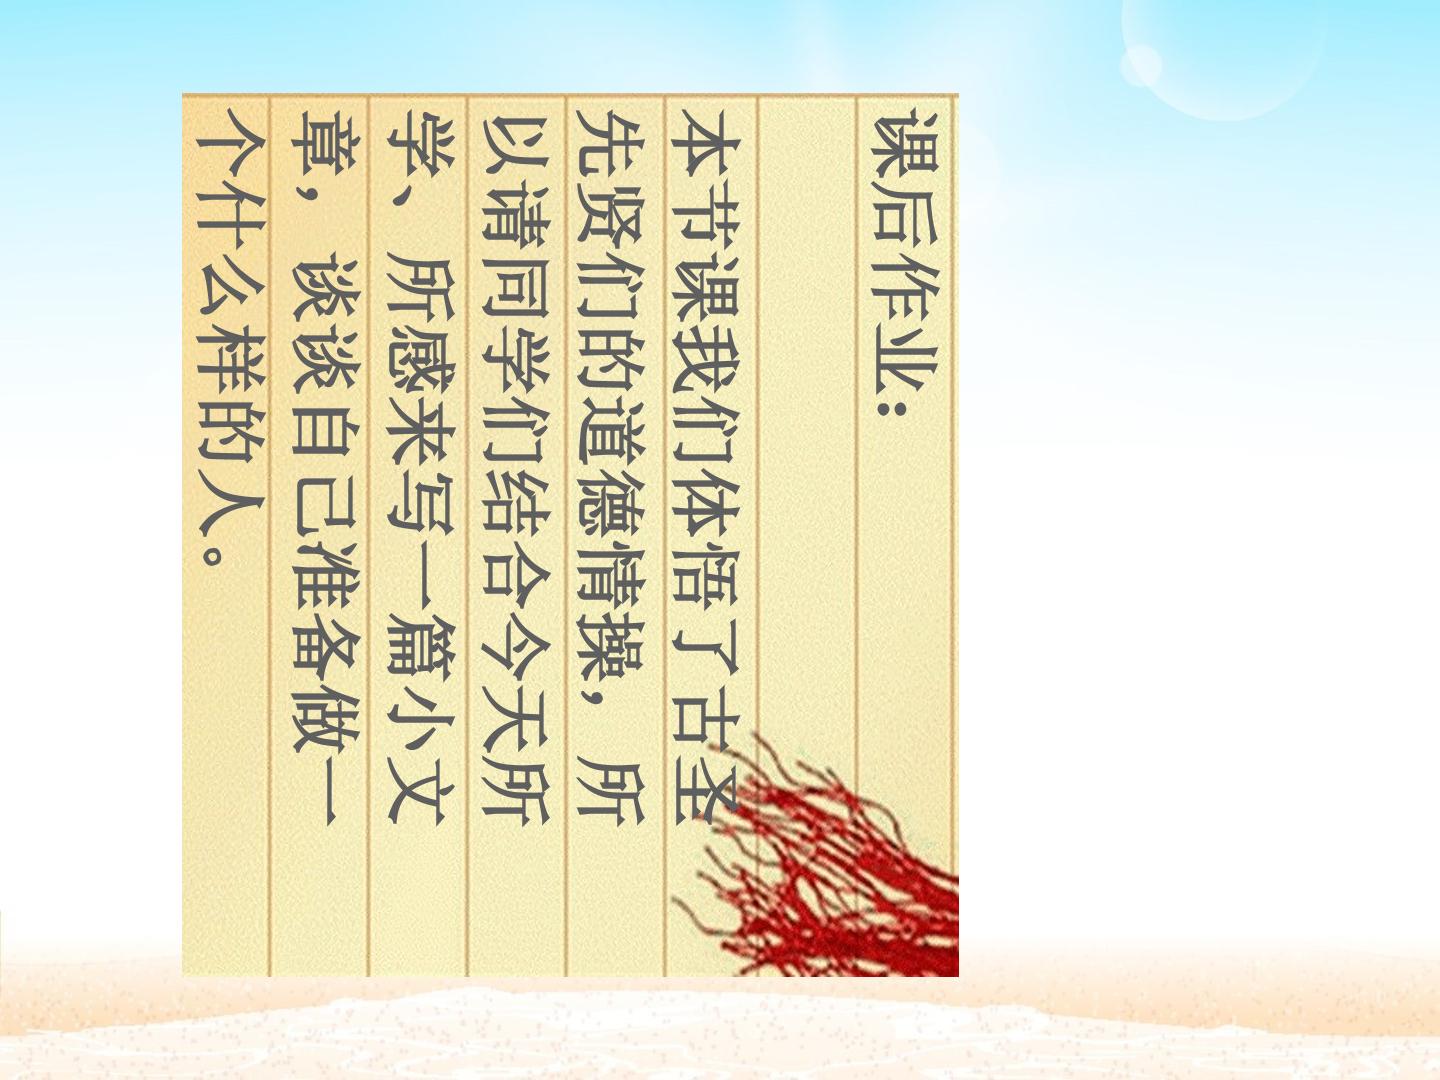 课后作业:
本节课我们体悟了古圣
先贤们的道德情操，所
以请同学们结合今天所
学、所感来写一篇小文
章，谈谈自己准备做一
个什么样的人。